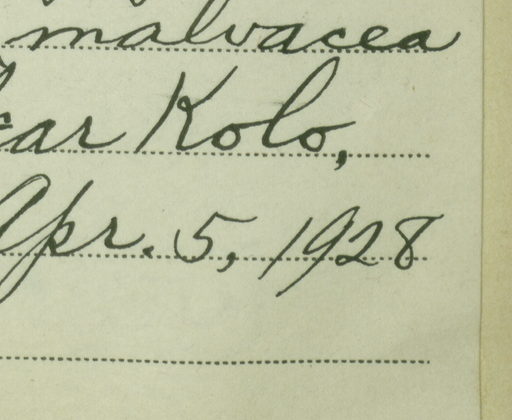 malvacea
Kolo,
Apr. 5, 1928